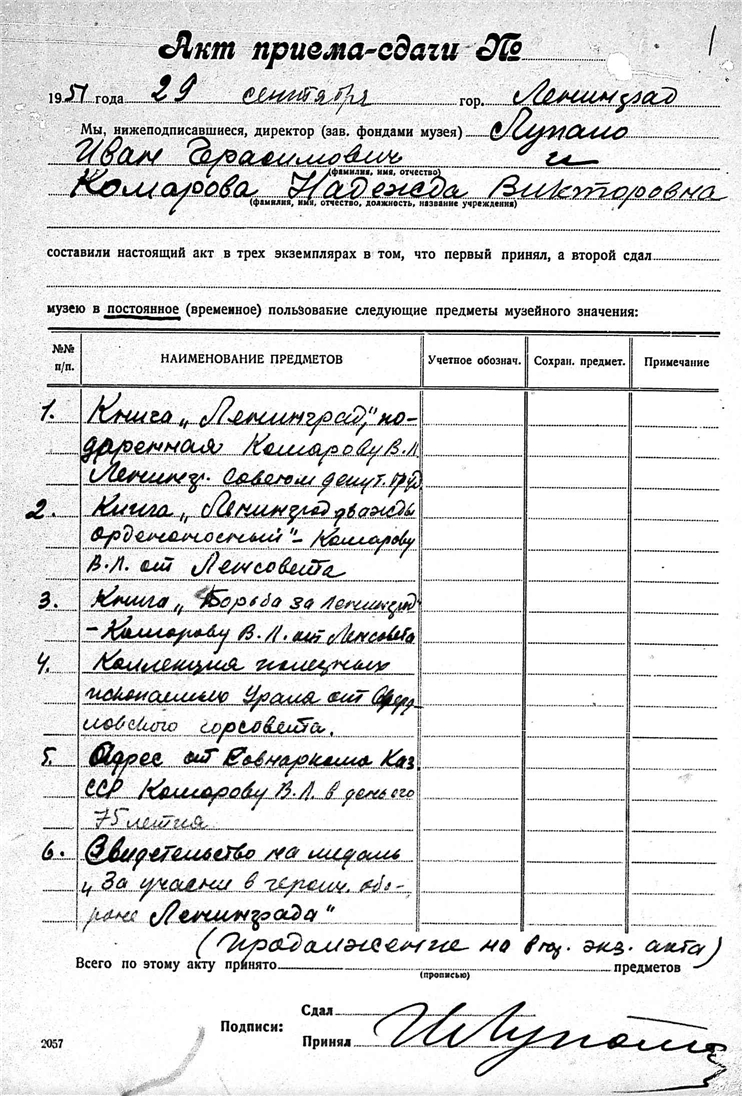 1
Акт приема-сдачи №
1951 года 29 сентября гор. Ленинград
Мы, нижеподписавшиеся, директор (зав. фондами музея) Лупало
Иван Герасимович и
(фамилия, имя, отчество)
Комарова Надежда Викторовна
(фамилия, имя, отчество, должность, название учреждения)
составили настоящий акт в трех экземплярах в том, что первый принял, а второй сдал
музею в постоянное (временное) пользование следующие предметы музейного значения:
№№ п/п. НАИМЕНОВАНИЕ ПРЕДМЕТОВ Учетное обознач. Сохран. предмет. Примечание
1. Книга „Ленинград", по-
даренная Комарову В.Л.
Ленингр. Советом депут. труд.
2. Книга „Ленинград дважды
орденоносный" - Комарову
В.Л. от Ленсовета
3. Книга „Борьба за Ленинград"
- Комарову В.Л. от Ленсовета
4. Коллекция полезных
ископаемых Урала от Сверд-
ловского горсовета.
5. Адрес от Совнаркома Каз.
ССР Комарову В.Л. в день его
75 летия
6. Свидетельство на медаль
„За участие в героич. обо-
роне Ленинграда"
(Продолжение на экз. акта)
Всего по этому акту принято предметов
(прописью)
Подписи:
Сдал
Принял ИЛупало
2057